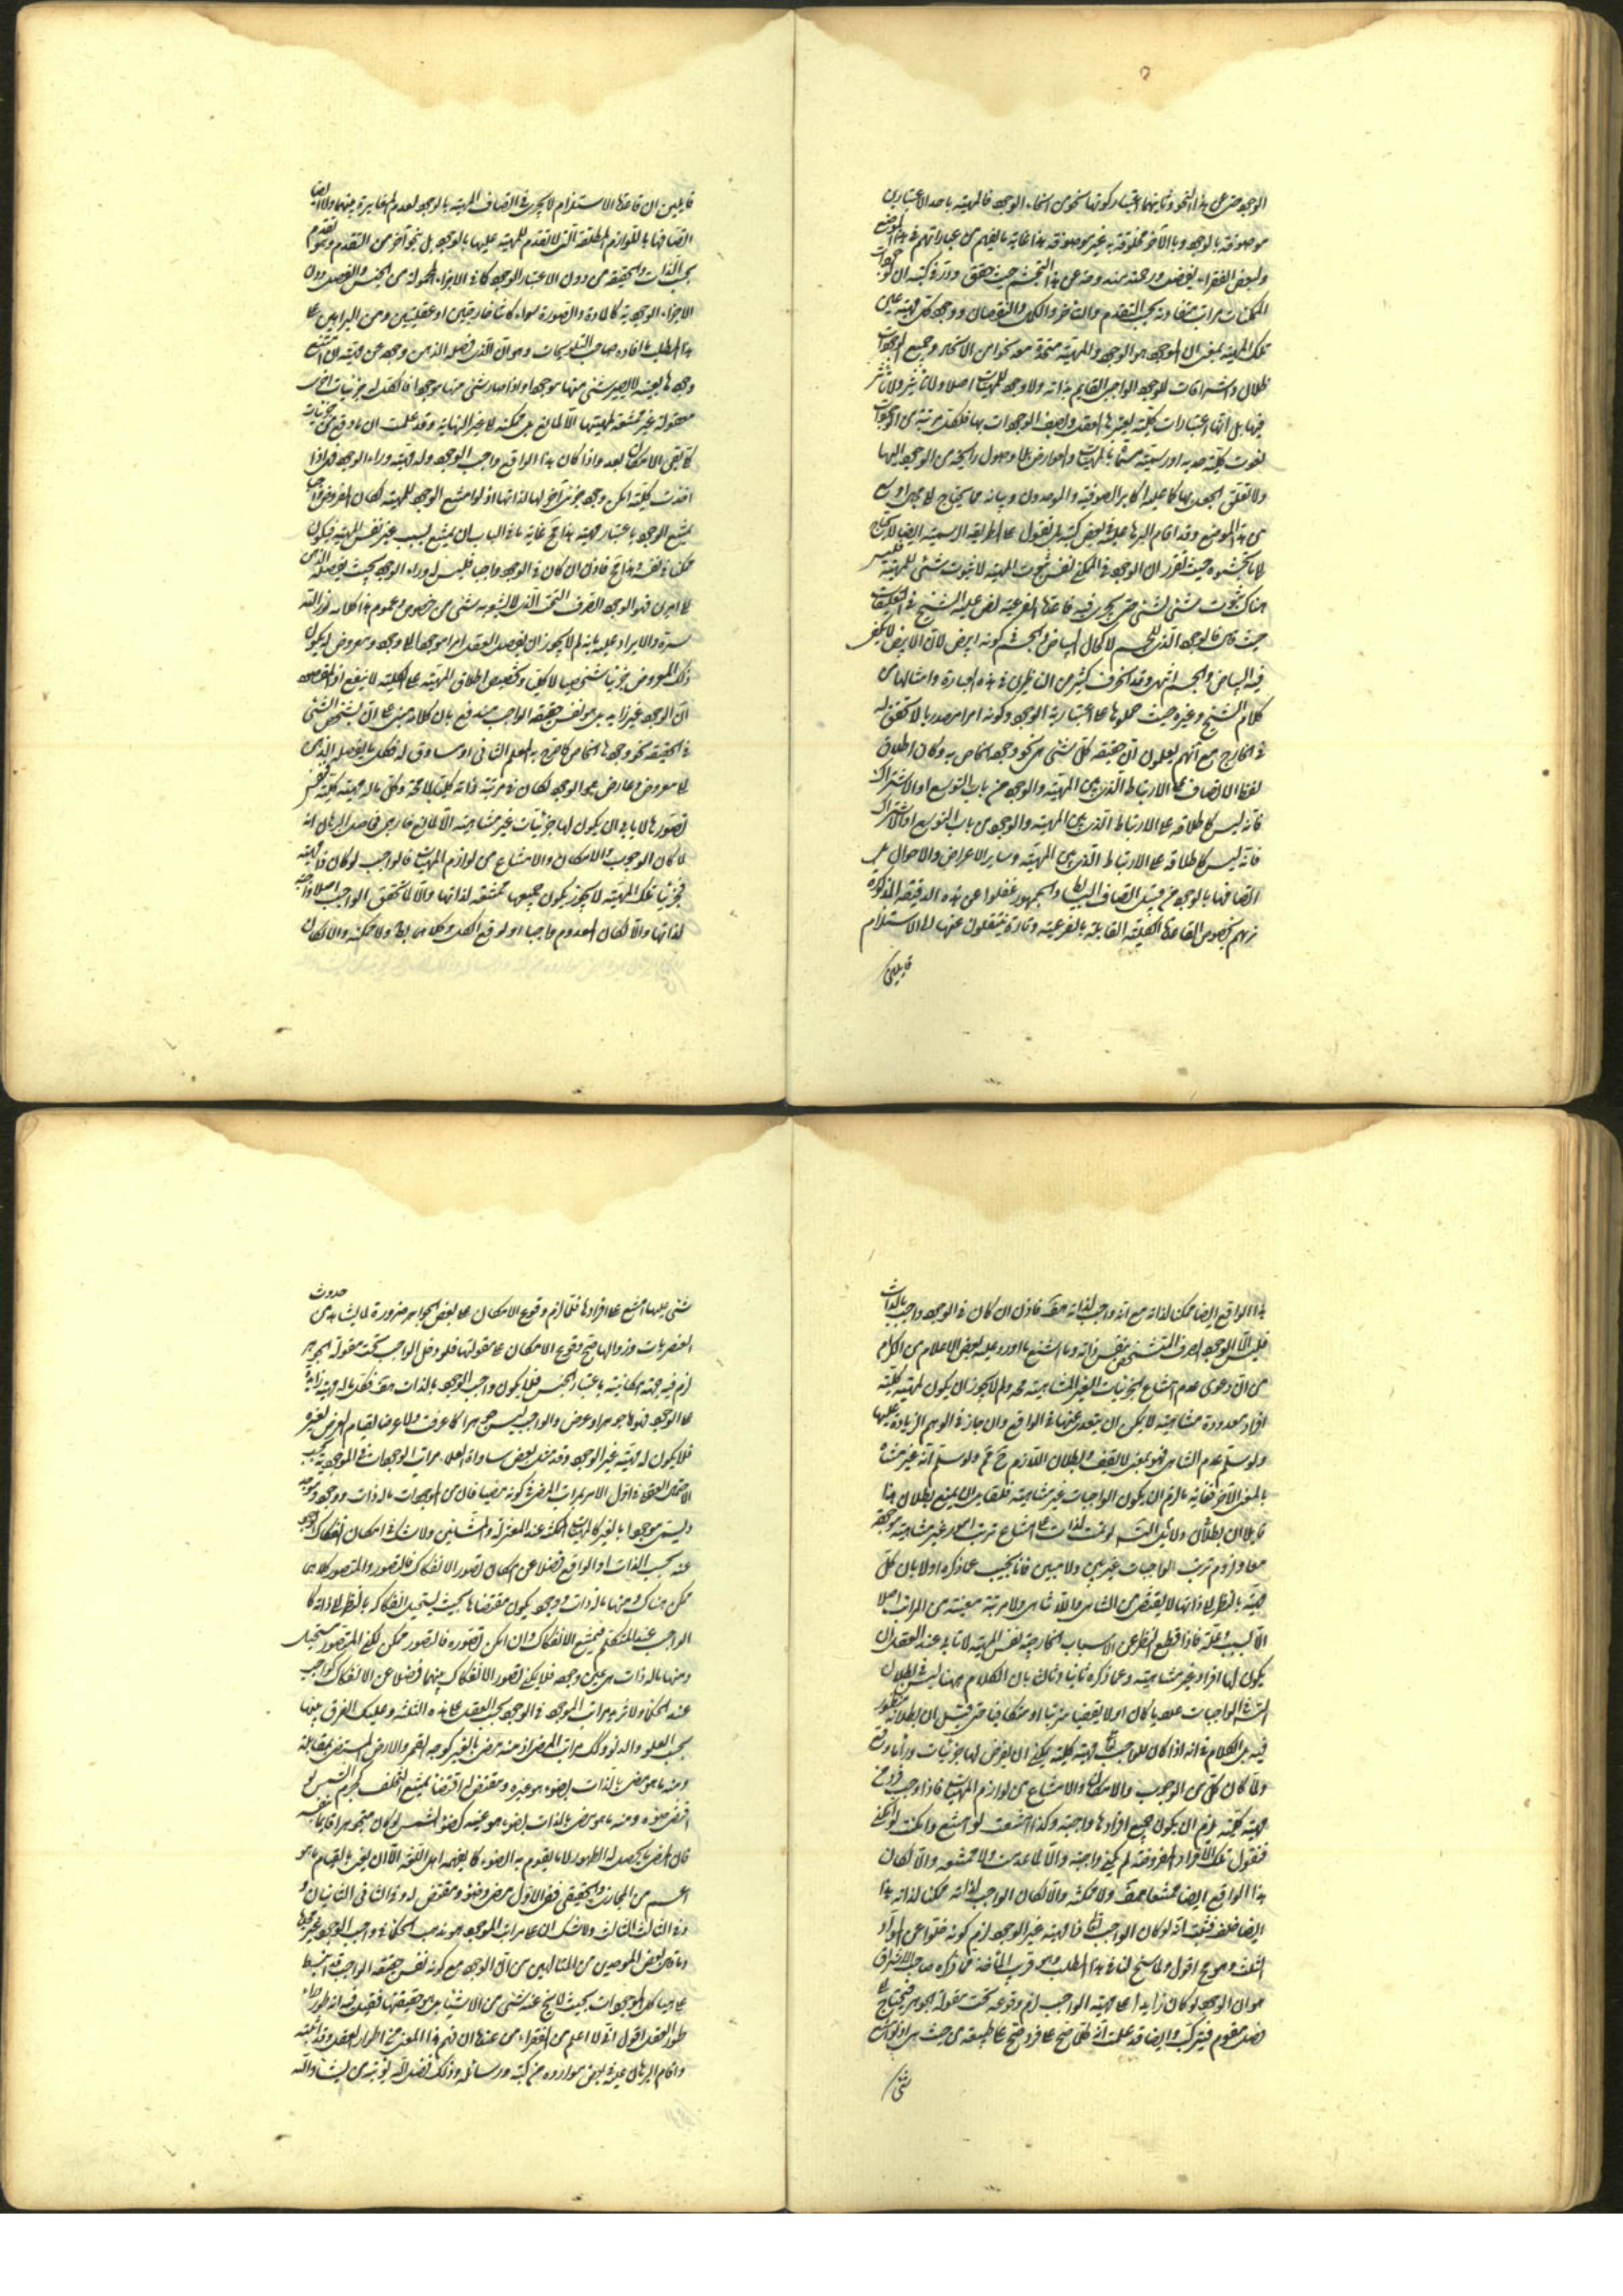 الوجود حتى عن هذا التجرد وثانيهما اعتبار كونها نحوا من انحاء الوجود فالمهية باحد الاعتبارين
موصوفة بالوجود وبالآخر مخلوطة به غير موصوفة هذا غاية ما يفهم من عباراتهم في هذا الموضع
ولبعض الفقراء بفضل ورحمته مندوحة عن هذا التجشم حيث حقق وزبره في كتبه ان لوجودات
الممكنات مراتب متفاوتة بحسب التقدم والتاخر والكمال والنقصان ووجود كل مهية عين
تلك المهية بمعنى ان الموجود هو الوجود والمهية متحدة معه نحوا من الاتحاد وجميع الوجودات
ظلال واشراقات للوجود الواجبي القايم بذاته ولا وجود للمهيات اصلا ولا تاثير ولا تاثر
فيها بل انها اعتبارات كلية يعتبرها العقل ويصف الوجودات بها فلكل مرتبة من الوجودات
نعوت كلية حدية او رسمية مسماة بالمهيات والعوارض ما وصول رايحة من الوجود اليها
ولا تعلق الجعل بها كما عليه اكابر الصوفية والموحدون وبيانه مما يحتاج الى مجال اوسع
من هذا الموضع وقد اقام البرهان عليه في بعض كتبه بل نقول على الطريقة الرسمية ايضا لا يحتاج
لما تجشموه حيث تقرر ان الوجود في الممكن نفس ثبوت المهية لا ثبوت شئ للمهية فليس
هناك ثبوت شئ لشئ حتى يجرى فيه قاعدة الفرعية نص عليه الشيخ في التعليقات
حيث قال فالوجود الذي للجسم لا كحال البياض والجسم في كونه ابيض لان الابيض لا يكفى
فيه البياض والجسم انتهى وقد انحرف كثير من الناظرين في هذه العبارة وامثالها من
كلام الشيخ وغيره حيث حملوها على اعتبارية الوجود وكونه امرا مصدريا لا تحقق له
في الخارج مع انهم يقولون ان حقيقة كل شئ هي نحو وجوده الخاص به وكان اطلاق
لفظ الاتصاف على الارتباط الذي بين المهية والوجود من باب التوسع او الاشتراك
فانه ليس كاطلاقه على الارتباط الذي بين المهية والوجود من باب التوسع او الاشتراك
فانه ليس كاطلاقه على الارتباط الذي بين المهية وساير الاعراض والاحوال بل
اتصافها بالوجود من قبيل اتصاف البسايط والجمهور غفلوا عن هذه الدقيقة المذكورة
تريهم يخصون القاعدة الكلية القايلة بالفرعية وتارة ينتقلون عنها الى الاستلزام
قايلين
قايلين ان قاعدة الاستلزام لا يجرى في اتصاف المهية بالوجود لعدم المغايرة بينهما ولا ايضا
اتصافها باللوازم المطلقة التي لا تقدم للمهية عليها بالوجود بل بنحو آخر من التقدم وهو التقدم
بحسب الذات والحقيقة من دون الاعتبار الوجود كما في الاجزاء المحمولة من الجنس والفصل دون
الاجزاء الوجودية كالمادة والصورة سواء كانتا خارجيتين او عقليتين ومن البراهين على
هذا المطلب ما افاده صاحب التلويحات وهو ان الذي فصل الذهن وجوده عن مهيته ان امتنع
وجودها بعينه لا يصير شئ منها موجودا واذا صار شئ منها موجودا فالكلي له جزئيات اخرى
معقولة غير ممتنعة لمهيتها الا لمانع بل ممكنة الى غير النهاية وقد علمت ان ما وقع من جزئيات
كلي بقى الامكان بعد واذا كان هذا الواقع واجب الوجود وله مهية وراء الوجود فهي اذا
اخذت كلية امكن وجود جزئي آخر لها لذاتها اذ لو امتنع الوجود للمهية لكان المفروض واجبا
ممتنع الوجود باعتبار مهيته هذا مح غاية ما في الباب ان يمتنع بسبب غير نفس المهية فيكون
ممكنا في نفسه هذا مح فاذن ان كان في الوجود واجب فليس له وراء الوجود بحيث يفصله الذهن
الى امرين فهو الوجود الصرف البحت الذي لا يشوبه شئ من خصوص وعموم هذا كلامه نور الله
سره والايراد عليه بانه لم لا يجوز ان يفصل العقل امرا موجودا الى وجود ومعروض له يكون
ذلك المعروض جزئيا شخصيا لا كليا وتخصيص اطلاق المهية على الكلية لا ينفع اذ المقصود
ان الوجود غير زايد بل هو نفس حقيقة الواجب مندفع بان كلامه مبني على ان تشخص الشئ
في الحقيقة نحو وجوده الخاص كما صرح به المعلم الثاني او مساوق له فكل ما يفصله الذهن
الى معروض وعارض هو الوجود لكان في مرتبة ذاته كليا لا محة وكل ما له مهية كلية نفس
تصورها لا يابى ان يكون لها جزئيات غير متناهية الا لمانع خارجي فحاصل البرهان انه
لما كان الوجوب والامكان والامتناع من لوازم المهيات فالواجب لو كان ذا مهية
فجزئيات تلك المهية لا يجوز يكون جميعها ممتنعة لذاتها والا لما تحقق الواجب اصلا ولا واجبة
لذاتها والا لكان المعدوم واجبا او لوقع الكل وكلاهما بط ولا ممكنة والا لكان
هذا الواقع ايضا ممكنا لذاته مع انه واجب لذاته هف فاذن ان كان في الوجود واجب بالذات
فليس الا الوجود الصرف المتشخص بنفس ذاته وما استشنع ما اورد عليه بعض الاعلام من الكرام
من ان دعوى عدم امتناع الجزئيات الغير المتناهية محه ولم لا يجوز ان يكون لمهية كلية
افراد معدودة متناهية لا يمكن ان يتعدى عنها في الواقع وان جاز في الوهم الزيادة عليها
ولو سلم عدم التناهي فهو بمعنى لا يقف وبطلان اللازم ح مم ولو سلم انه غير متناه
بالمعنى الآخر فغايته ما لزم ان يكون الواجبات غير متناهية فلقايل ان يمنع بطلان هذا
قايلا ان بطلان دلائل التس لو تمت لدلت على امتناع ترتب امور غير متناهية موجودة
معا ولزوم ترتب الواجبات غير بين ولا مبين فانا نجيب عما ذكره اولا بان كل
مهية بالنظر الى ذاتها لا يقتضي من التناهي واللا تناهي ولا مرتبة معينة من المراتب اصلا
الا لسبب وعلة فاذا قطع النظر عن الاسباب الخارجية لنفس المهية لا تابى عند العقل ان
يكون لها افراد غير متناهية وعما ذكره ثانيا وثالثا بان الكلام ههنا ليس في بطلان
التس في الواجبات عدديا كان او لا يقفيا مترتبا او متكافيا حتى قيل ان بطلانه منظور
فيه بل الكلام في انه اذا كان للواجب تعا مهية كلية يمكن ان يفرض لها جزئيات وراء ما وقع
ولما كان كل من الوجوب والامكان والامتناع من لوازم المهيات فاذا وجب فرد من
مهية كلية لزم ان يكون جميع افرادها واجبة وكذا امتنعت لو امتنع وامكنت لو امكن
فنقول تلك الافراد المفروضة لم يكن واجبة والا لما عدمت ولا ممتنعة والا لكان
هذا الواقع ايضا ممتنعا هف ولا ممكنة والا لكان الواجب لذاته ممكنا لذاته هذا
ايضا خلف فثبت انه لو كان الواجب تعا ذا مهية غير الوجود لزم كونه خلوا عن المواد
الثلث وهو مح اقول ولما سنح لنا في هذا المطلب وهو قريب الماخذ مما ذكره صاحب الاشراق
هو ان الوجود لو كان زايدا على مهية الواجب لزم وقوعه تحت مقولة الجوهر فيحتاج الى
فصل مقوم فيتركب وايضا قد علمت ان كل ما صح على فرد صح على طبيعته من حيث هي او لو امتنع
شئ
شئ عليها امتنع على افرادها فلما لزم وقوع الامكان على بعض الجواهر ضرورة لما يشاهد من حدوث
العنصريات وزوالها صح وقوع الامكان على مقولتها فلو دخل الواجب تحت مقولة الجوهر
لزم فيه جهة امكانية باعتبار الجنس فلا يكون واجب الوجود بالذات هف فكل ما له مهية زايدة
على الوجود فهو اما جوهر او عرض والواجب ليس جوهرا كما عرفت ولا عرضا لقيام العرض بغيره
فلا يكون له مهية غير الوجود وقد مثل بعض سادات العلماء مراتب الوجودات في الموجودية بحسب
الاحتمال العقلي في اول الامر بمراتب المضئ في كونه مضيئا فان من الموجودات ما له ذات ووجود وموجد
وليس موجودا بالغير كالمهيات الممكنة عند المعتزلة والمشائين ولا شك في امكان انفكاك الوجود
عنه بحسب الذات او الواقع فضلا عن امكان تصور الانفكاك فالتصور والمتصور كلاهما
ممكن هناك ومنها ما له ذات ووجود يكون مقتضاها بحيث يستحيل انفكاكه بالنظر الى ذاته كما
الواجب عند المتكلم فيمتنع الانفكاك وان امكن تصوره فالتصور ممكن لكن المتصور مستحيل
ومنها ما له ذات هي عين وجوده فلا يمكن تصور الانفكاك بينهما فضلا عن الانفكاك كواجب
عند الحكماء ولا تزيد مراتب الموجود في الوجود بحسب العقل على هذه الثلثة وعليك الفرق بينها
بحسب العلو والدنو وكذلك مراتب المضئ اذ منه مضئ بالغير كوجه القمر والارض المستضئ بمقابلته
ومنه ما هو مضئ بالذات بضوء هو غيره ومقتضى له اقتضاء يمتنع التخلف كجرم الشمس لو
اقتضى ضوءه ومنه ما هو مضئ بالذات بضوء ما هو عينه كضوء الشمس لو كان متجوهرا قايما بنفسه
فان المضئ ما يحصل له الظهور لا ما يقوم به الضوء كما يفهمه اهل اللغة الا ان يعنى بالقيام ما هو
اعم من المجازي والحقيقي ففي الاول مضئ وضوء ومقتضى له وفي الثاني الثانيان و
في الثالث الثالث ولا شك ان اعلى مراتب الموجود هو مذهب الحكماء في واجب الوجود
وما قال بعض الموحدين من المتالهين من ان الوجود مع كونه نفس حقيقة الواجب قد انبسط
على هياكل الموجودات بحيث لا يخ عنه شئ من الاشياء بل هو حقيقتها فقيل فيه انه طور وراء
طور العقل اقول انى لا اعلم من الفقراء من عنده ان فهم هذا المعنى من اطوار العقل وقد اثبته
واقام البرهان عليه في بعض موارده من كتبه ورسائله وذلك فضل الله يؤتيه من يشاء والله